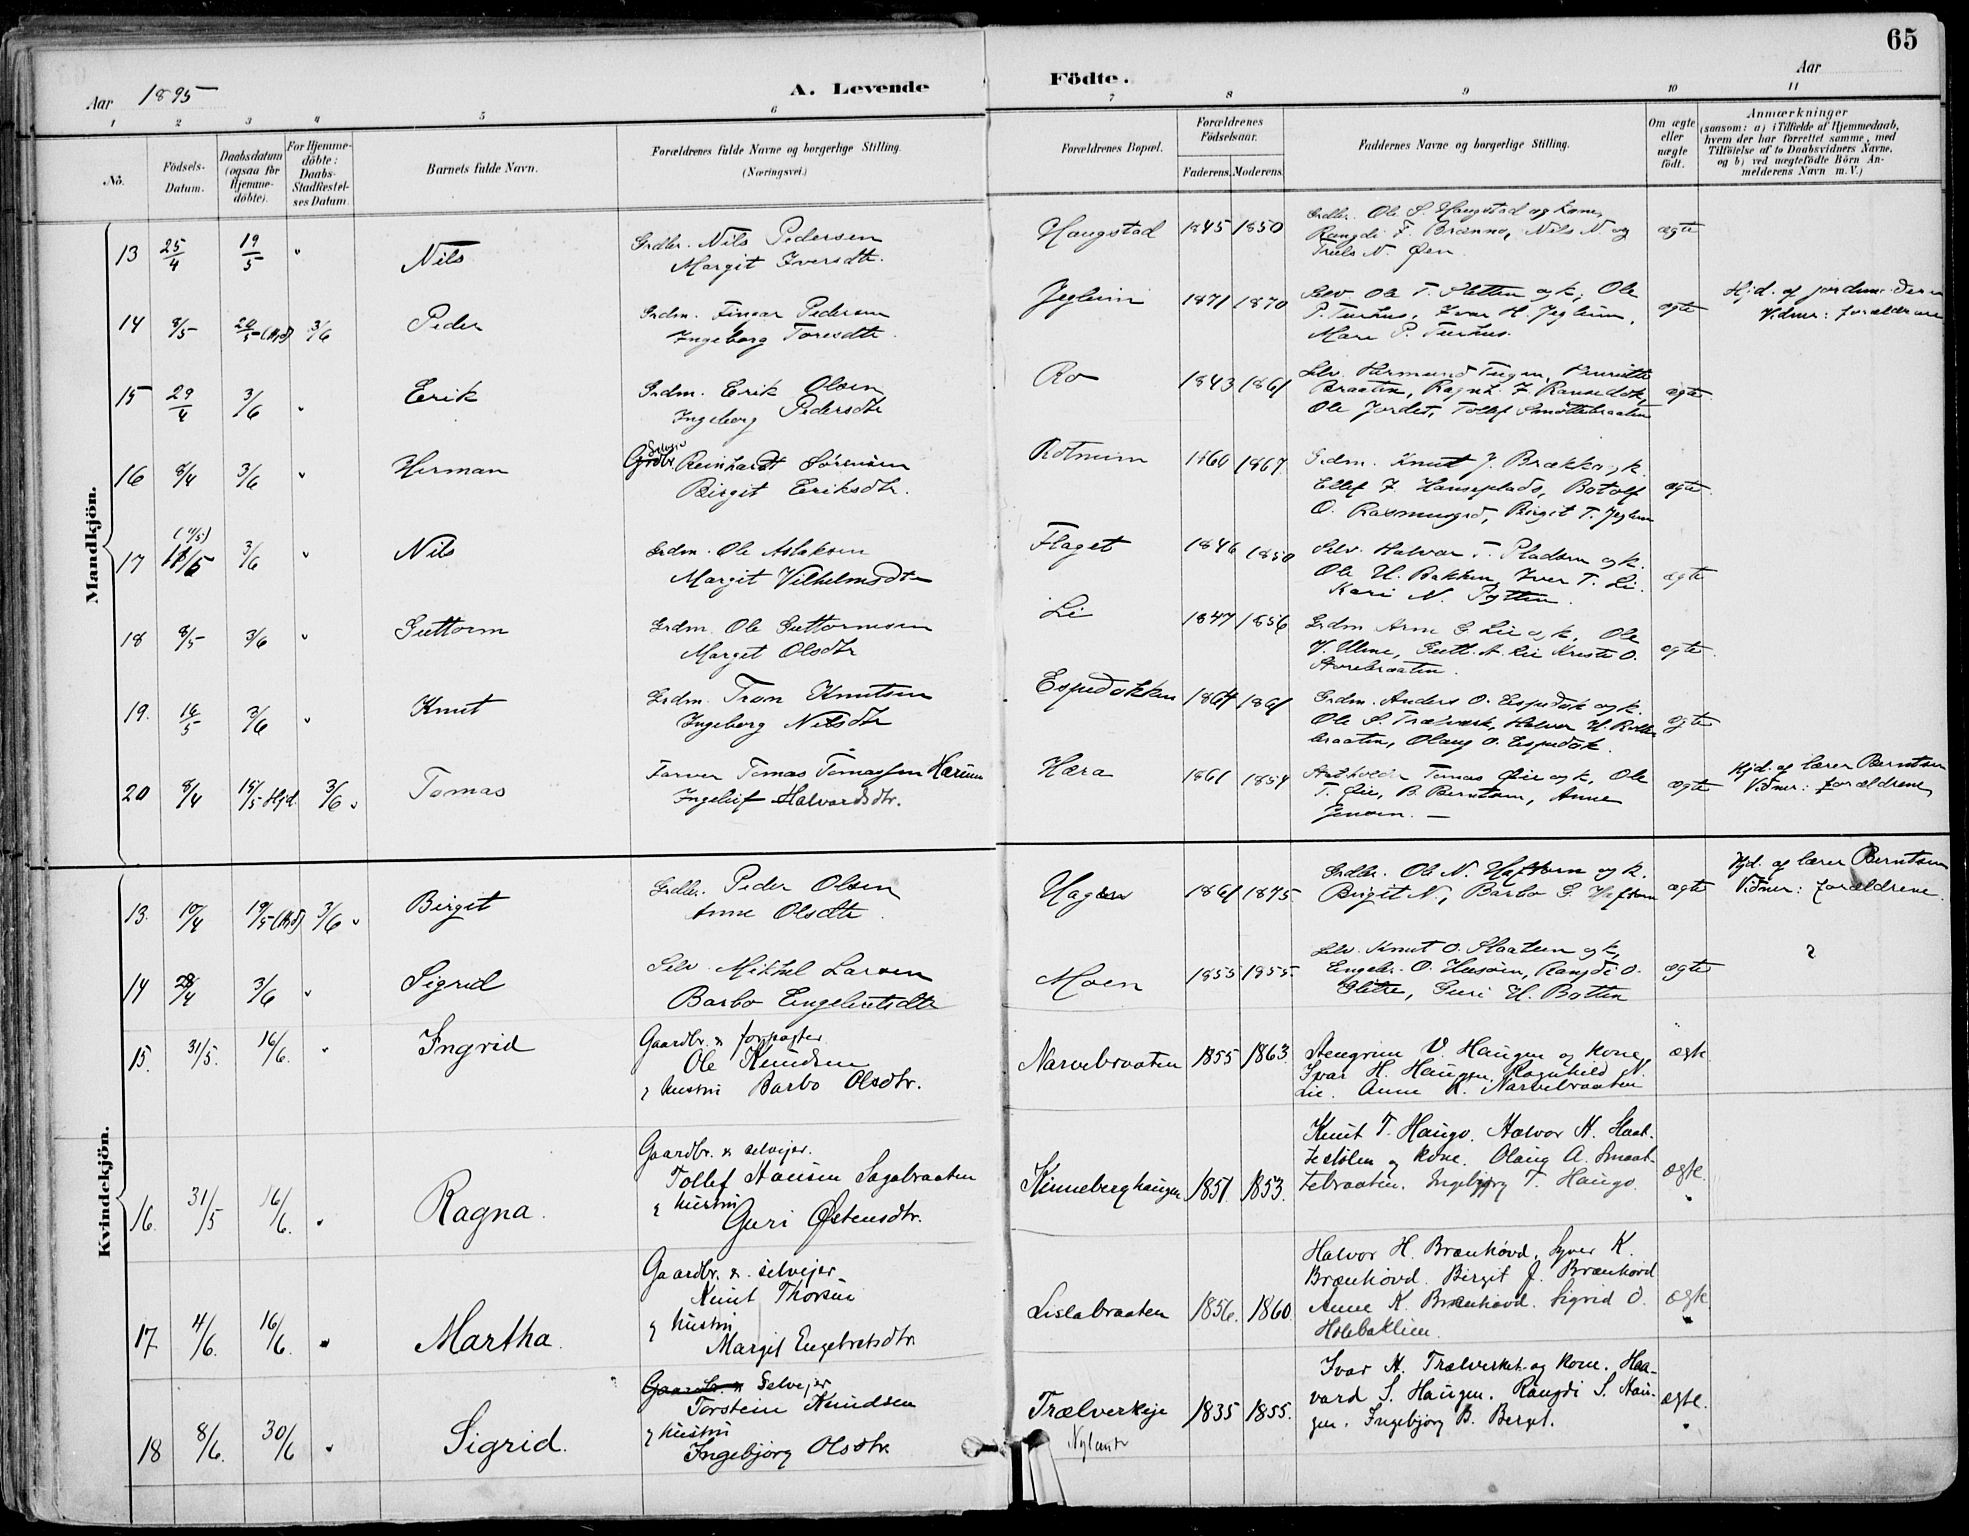 65
Aar 1895
A. Levende
Födte.
Aar
1 2 3 4 5 6 7 8 9 10 11
No.
Födsels-Datum.
Daabsdatum (ogsaa för Hjemme-döbte).
For Hjemme-döbte: Daabs-Stadfæstel-ses Datum.
Barnets fulde Navn.
Forældrenes fulde Navne og borgerlige Stilling. (Næringsvei.)
Forældrenes Bopæl.
Forældrenes Födselsaar.
Faderens. Moderens.
Faddernes Navne og borgerlige Stilling.
Om ægte eller uægte födt.
Anmærkninger
(saasom: a) i Tilfælde af Hjemmedaab,
hvem der har forrettet samme, med
Tilföielse af to Daabsvidners Navne,
og b) ved uægtefödte Börn An-
melderens Navn m. V.)
Mandkjön.
13 25/4 19/5 " Nils
Grdbr. Nils Pedersen
Margit Iversdtr.
Haugstad 1845 1850
Grdbr. Ole S. Haugstad og kone,
Rangdi F. Brenno, Nils N. og
Truls N. Øen
ægte
14 8/5 20/5 (Hjd) 3/6 Peder
Grdm. Finar Pedersen
Ingeborg Toresdtr.
Jegleim 1871 1870
Selv. Ole T. Sletten og k, Ole
P. Turhus, Ivar H. Jegleim,
Mari P. Turhus.
ægte
Hjd. af jordmoderen
Vidner: forældrene
15 29/4 3/6 " Erik
Grdm. Erik Olsen
Ingeborg Pedersdtr
Ro 1843 1861
Braaten, Ragnh.
Ole Jordet, Tollef
ægte.
16 8/4 3/6 " Herman
Grdbr. Reinhardt Sørensen
Birgit Eriksdtr.
Rotneim 1860 1867
Grdm. Knut J. Brækka og k.
Ellef F. Hanseplads, Botolf
O. Rasmusgrd, Birgit T. Jegleim
ægte.
17 (11/5) 11/5 3/6 " Nils
Grdm. Ole Aslaksen
Margit Vilhelmsdtr
Flaget 1846 1850
Selv. Halvor T. Pladsen og k.
Ole H. Bakken, Iver T. Li.
Kari N. Pytten.
ægte
18 8/5 3/6 " Guttorm
Grdm. Ole Guttormsen
Marget Olsdtr
Li 1847 1856
Grdm Arne G. Lie og k. Ole
Gutt. A. Lie Kristi O.
ægte.
19. 16/5 3/6 " Knut
Grdm. Tron Knutsen
Ingeborg Nilsdtr
Espedokken 1864 1861
Grdm. Anders O. Espedok og k.
Ole S. Trælverk, Halvor H.
braaten, Olaug O. Espedok.
ægte
20 8/4 15/5 Hjd. 3/6 " Tomas
Farver Tomas Tomassen Hæreim
Ingeleif Halvordsdtr.
Hæra 1861 1854
Tomas Lie og k, Ole
T. Lie, B. Berntsen, Anne
Jensen. —
ægte
Hjd. af lærer Berntsen
Vidner: forældrene
Kvindekjön.
13. 10/4 19/5 (Hjd) 3/6 " Birgit
Grdbr. Peder Olsen
Anne Olsdtr.
Hagen 1861 1875
Grdbr. Ole N. Haftorn og k.
Birgit N., Barbo G. Haftorn
ægte
Hjd. af lærer Berntsen
Vidner: forældrene.
14 28/4 3/6 " Sigrid
Selv. Mikkel Larsen
Barbo Engebretsdtr
Moen 1855 1855.
Selv. Knut O. Plaaten og k,
Engebr. O. Husøien, Rangdi O.
Glitre, Guri H. Botten
ægte
?
15. 31/5. 16/6. " Ingrid
Gaardbr. & forpagter
Ole Knudsen
& hustru Barbo Olsdtr.
Narvebraaten 1855 1863.
Stengrim V. Haugen og kone.
Ivar H. Haugen, Ragnhild N.
Lie. Anne K. Narvebraaten
ægte
16. 31/5 16/6. " Ragna.
Gaardbr. & selvejer.
Tollef Hansen Sagabraaten
& hustru
Guri Østensdtr.
Kinneberghaugen 1851. 1853.
Knut T. Haugo. Halvor H. Haat-
testølen og kone. Olaug A. Smaat-
tebraaten. Ingebjørg T. Haugo.
ægte.
"
17 4/6. 16/6. " Martha.
Gaardbr. & selvejer
Knut Thorsen
& hustru
Margit Engebretsdtr.
Lislabraaten 1856. 1860.
Halvor H. Brænhovd, Syver K.
Brænhovd. Birgit J. Brænhovd
Anne K. Brænhovd. Sigrid O.
Holebaklien.
ægte
"
18 8/6. 30/6 " Sigrid.
Gaardbr. & Selvejer
Torstein Knudsen
& hustru
Ingebjørg Olsdtr.
Trælverkeje
Nylante
1835 1855.
Ivar H. Trælverket og kone. Haa-
vard S. Haugen. Rangdi S. Hau-
gen. Ingebjørg B. Berget.
ægte.
"